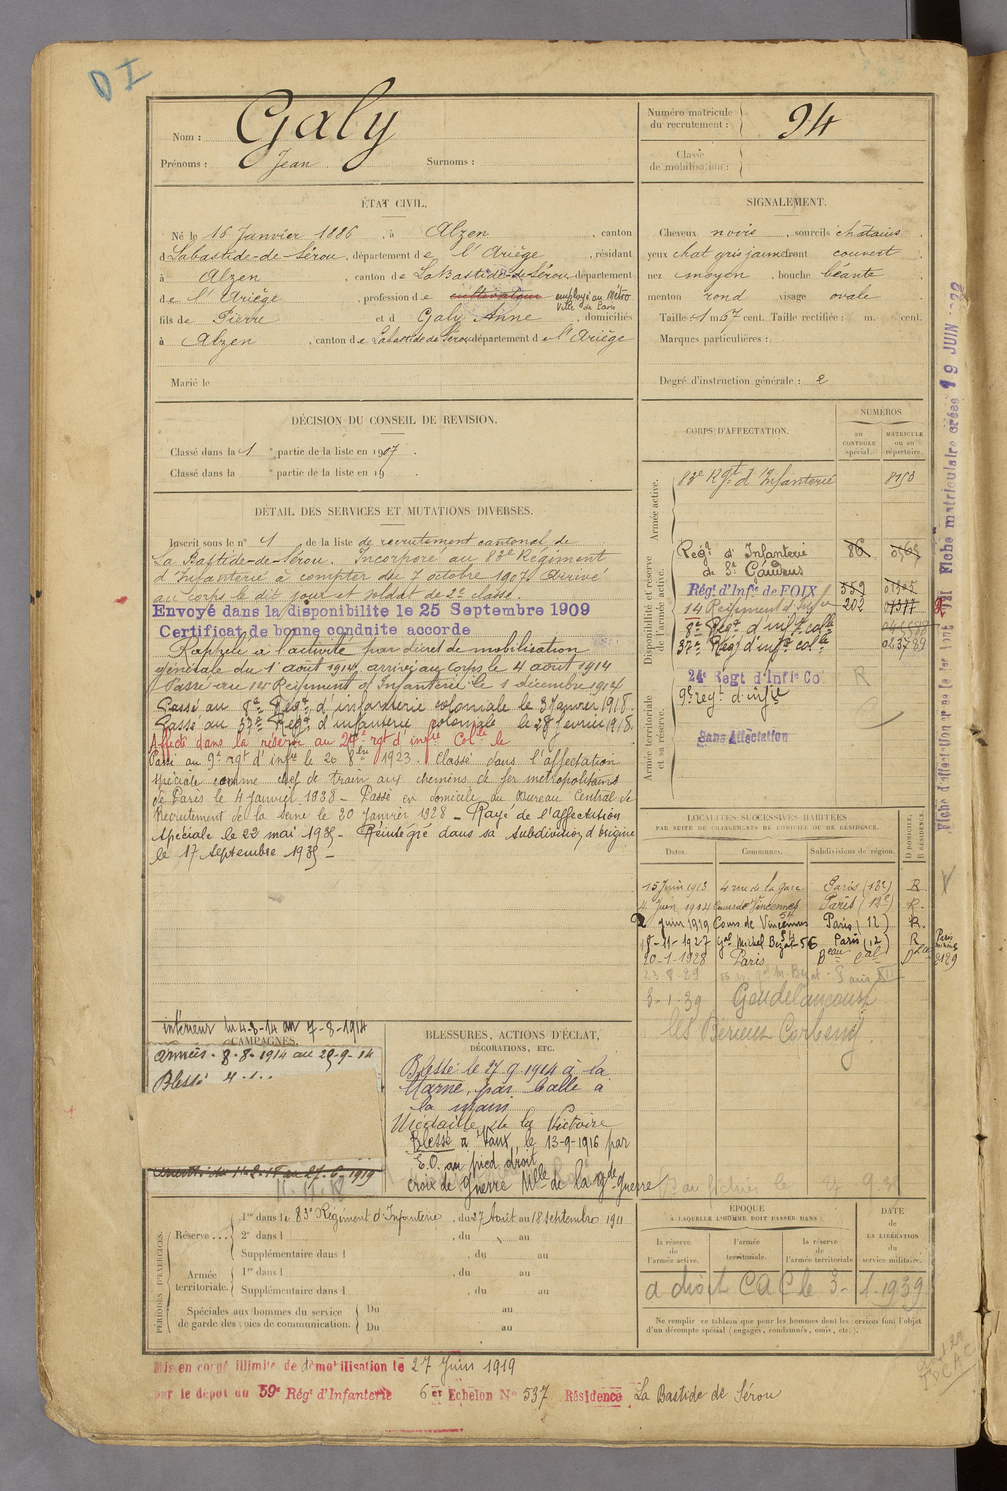 D I
Nom : Galy
Prénoms : Jean Surnoms :
Numéro matricule du recrutement : 94
Classe de mobilisation :
ÉTAT CIVIL.
Né le 16 Janvier 1886, à Alzen, canton
d Labastide-de-Sérou, département de l'Ariège, résidant
à Alzen, canton de LaBastide-de-Sérou département
de l'Ariège, profession de cultivateur employé au Métro Ville de Paris
fils de Pierre et d Galy Anne, domiciliés
à Alzen, canton de Labastide de Sérou département de l'Ariège
Marié le
SIGNALEMENT.
Cheveux noirs, sourcils châtains
yeux chat gris jaune front couvert
nez moyen, bouche béante
menton rond visage ovale
Taille : 1 m 67 cent. Taille rectifiée : m. cent.
Marques particulières :
Degré d'instruction générale : 2
DÉCISION DU CONSEIL DE REVISION.
Classé dans la 1 e partie de la liste en 1907.
Classé dans la e partie de la liste en 19 .
DÉTAIL DES SERVICES ET MUTATIONS DIVERSES.
Inscrit sous le n° 1 de la liste de recrutement cantonal de
La Bastide-de-Sérou. Incorporé au 83e Régiment
d'Infanterie à compter du 7 octobre 1907. Arrivé
au corps le dit jour et soldat de 2e classe.
Envoyé dans la disponibilite le 25 Septembre 1909
Certificat de bonne conduite accorde
Rappelé à l'activité par décret de mobilisation
générale du 1 août 1914, arrivé au corps le 4 août 1914
Passé au 14e Régiment d'Infanterie le 1 décembre 1914
Passé au 8e Régt d'infanterie coloniale le 3 Janvier 1918.
Passé au 37e Régt d'infanterie coloniale le 28 fevrier 1918.
Affecté dans la réserve au 24e rgt d'infie Colle le
Passé au 9e rgt d'infie le 20 8bre 1923. Classé dans l'affectation
spéciale comme chef de train aux chemins de fer métropolitains
de Paris le 4 janvier 1938 - Passé en domicile au Bureau Central de
Recrutement de la Seine le 20 Janvier 1928 - Rayé de l'affectation
spéciale le 22 mai 1935 - Réintégré dans sa subdivision d'origine
le 17 septembre 1935 -
CORPS D'AFFECTATION.
NUMÉROS
au CONTRÔLE spécial.
MATRICULE ou au répertoire.
Armée active.
83e Rgt d'Infanterie 8153
Disponibilité et réserve de l'armée active.
Régt d'Infanterie de St Gaudens 86
Régt d'Infie de FOIX 559
14 Régiment d'Infie 202
8e Régt d'infie colle
37e Régt d'infie colle 023789
Armée territoriale et sa réserve.
24e Regt d'Infie Col R
9e regt d'infie
Sans Affectation
LOCALITÉS SUCCESSIVES HABITÉES
PAR SUITE DE CHANGEMENTS DE DOMICILE OU DE RÉSIDENCE.
D DOMICILE. R RÉSIDENCE.
Dates. Communes. Subdivisions de région.
15 Juin 1913 4 rue de la gare Paris (12e) R
4 Juin 1914 Cours de Vincennes Paris (12e) R.
2 juin 1919 Cours de Vincennes 54 Paris (12) R.
18-11-1927 Gal Michel Bizot 56 Paris (12) R
20-1-1928 Paris Beau Cal D
23.8.29 Paris XII
3-1-39 Goudelancourt
les Berrieux Corbeny
Fiche matriculaire créée 19 JUIN
intérieur du 4-8-14 au 7-8-1914
CAMPAGNES.
armées. 8-8-1914 au 29-9-14
Blessé
au 27-6-1919
BLESSURES, ACTIONS D'ÉCLAT,
DÉCORATIONS, ETC.
Blessé le 27 9 1914 à la
Marne, par balle à
la main
Médaille de la Victoire
Blessé à Vaux, le 13-9-1916 par
E.O. au pied droit
croix de guerre Mlle de la gde guerre
PÉRIODES D'EXERCICES.
Réserve... 1re dans l e 83e Régiment d'Infanterie, du 27 Août au 18 septembre 1911
2e dans l , du au
Supplémentaire dans l , du au
Armée territoriale. 1re dans l , du au
Supplémentaire dans l , du au
Spéciales aux hommes du service de garde des voies de communication. Du au
Du au
EPOQUE
A LAQUELLE L'HOMME DOIT PASSER DANS :
la réserve de l'armée active.
l'armée territoriale.
la réserve de l'armée territoriale
DATE de LA LIBÉRATION du service militaire.
a droit C A C le 3-1-1939
Ne remplir ce tableau que pour les hommes dont les services font l'objet
d'un décompte spécial (engagés, condamnés, omis, etc.).
Mis en congé illimité de démobilisation le 27 Juin 1919
par le dépot du 59e Régt d'Infanterie 6er Echelon N° 537 Résidence La Bastide de Sérou